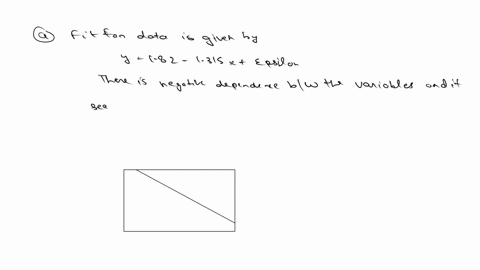 (a) Fit for data is given by
y = 1.82 - 1.315x + Epsilon
There is negative dependence b/w the variables and it
see